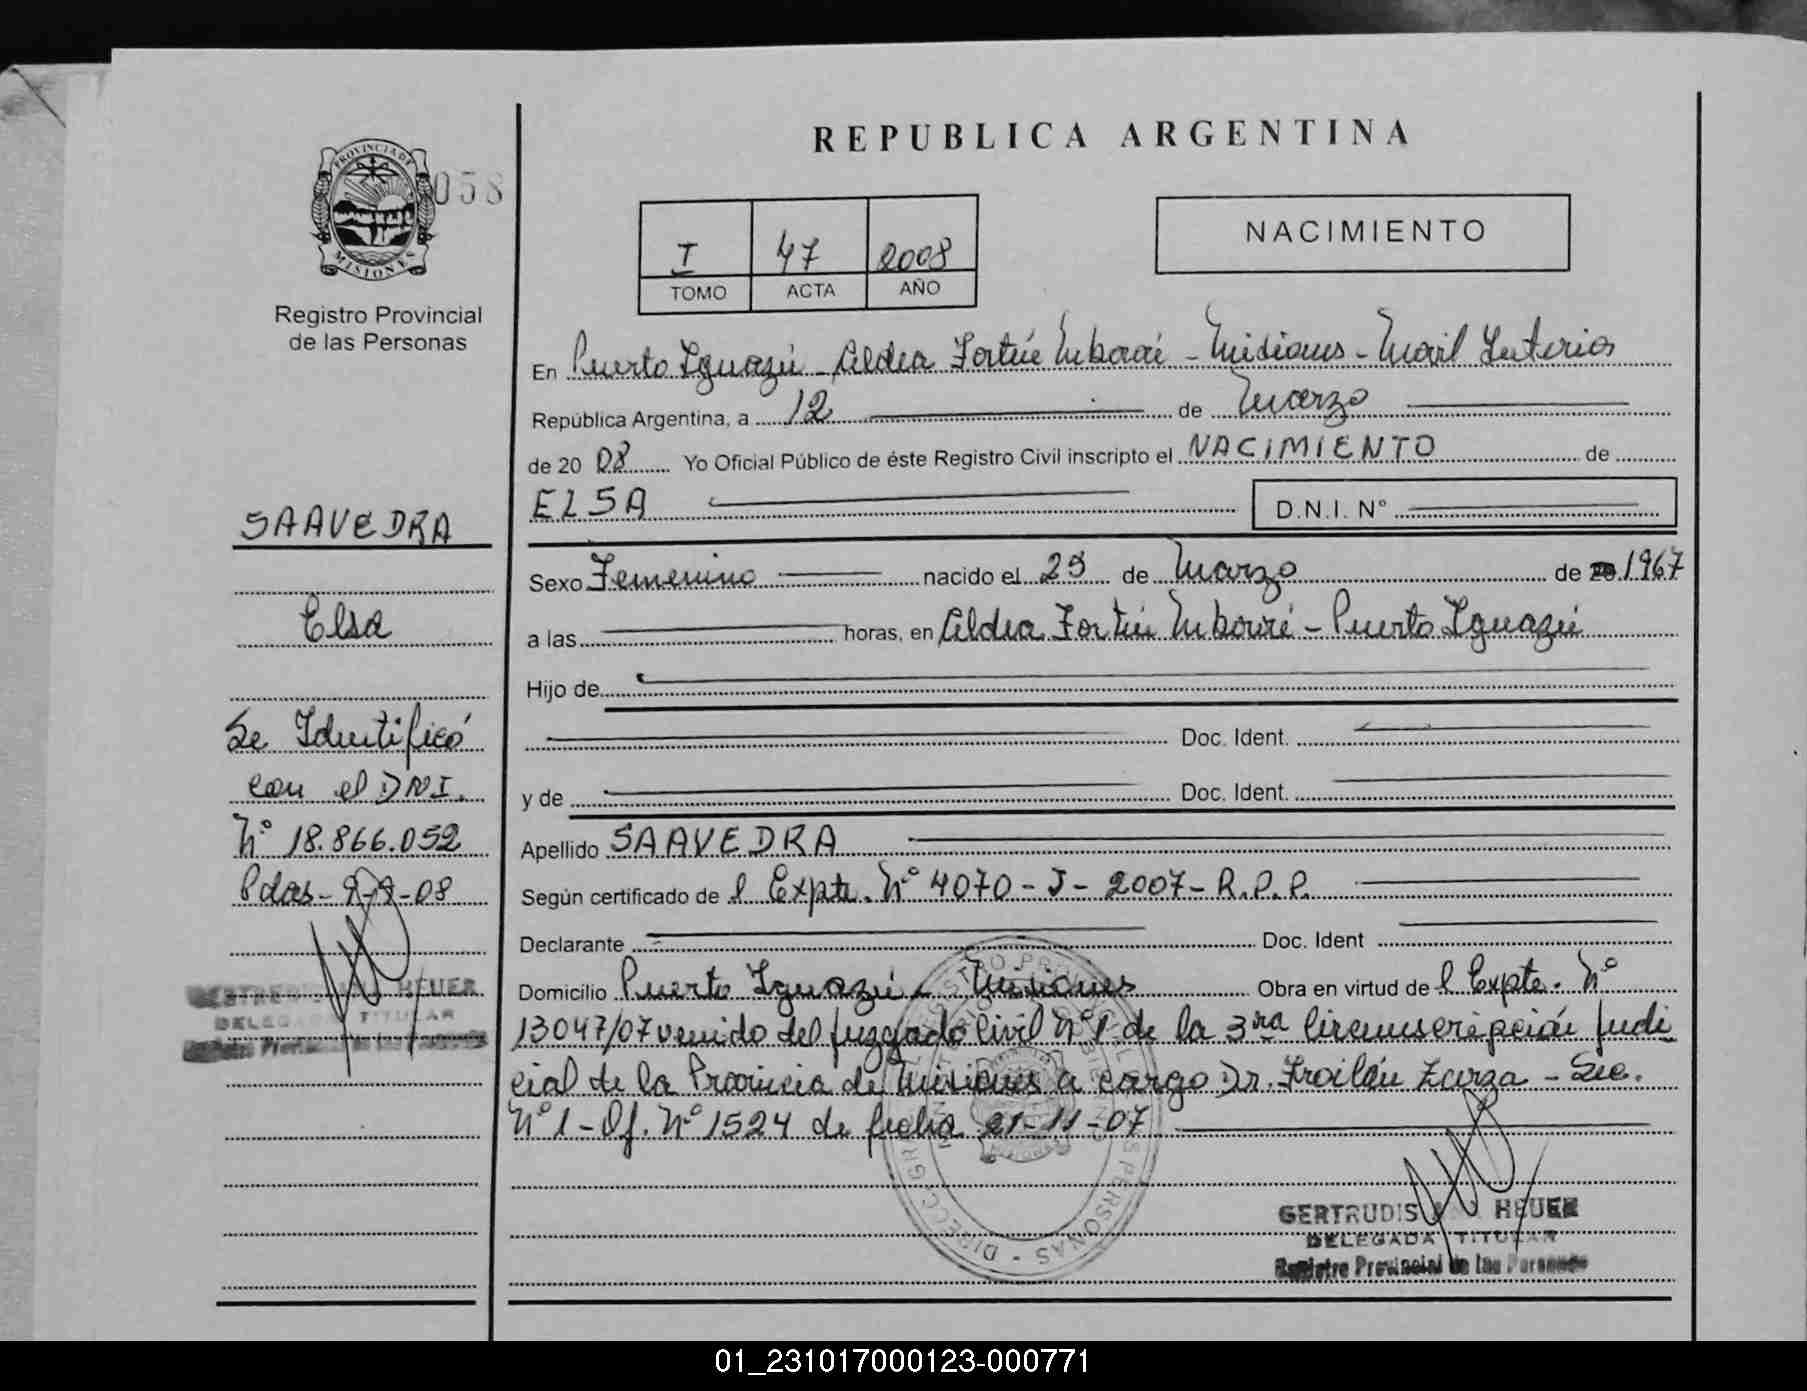 REPUBLICA ARGENTINA
PROVINCIA DE
MISIONES
058
Registro Provincial
de las Personas
I 47 2008
TOMO ACTA AÑO
NACIMIENTO
En Puerto Iguazú - Aldea Fortín Mbororé - Misiones - Movil Interior
República Argentina, a 12 de Marzo
de 20 08 Yo Oficial Público de éste Registro Civil inscripto el NACIMIENTO de
ELSA D.N.I. N°
SAAVEDRA
Elsa
Se Identificó
con el DNI.
N° 18.866.052
Pdas - 9-9-08
HEUER
DELEGADA TITULAR
Registro Provincial de las Personas
Sexo Femenino nacido el 29 de Marzo de 1967
a las horas, en Aldea Fortín Mbororé - Puerto Iguazú
Hijo de
Doc. Ident.
y de Doc. Ident.
Apellido SAAVEDRA
Según certificado de l Expte. N° 4070 - J - 2007 - R.P.P.
Declarante Doc. Ident
Domicilio Puerto Iguazú - Misiones Obra en virtud de l Expte. N°
13047/07 venido del Juzgado Civil N° 1 de la 3ra Circunscripción Judi
cial de la Provincia de Misiones a cargo Dr. Froilán Zarza - Sec.
N° 1 - Of. N° 1524 de fecha 21-11-07
GERTRUDIS HEUER
DELEGADA TITULAR
Registro Provincial de las Personas
01_231017000123-000771